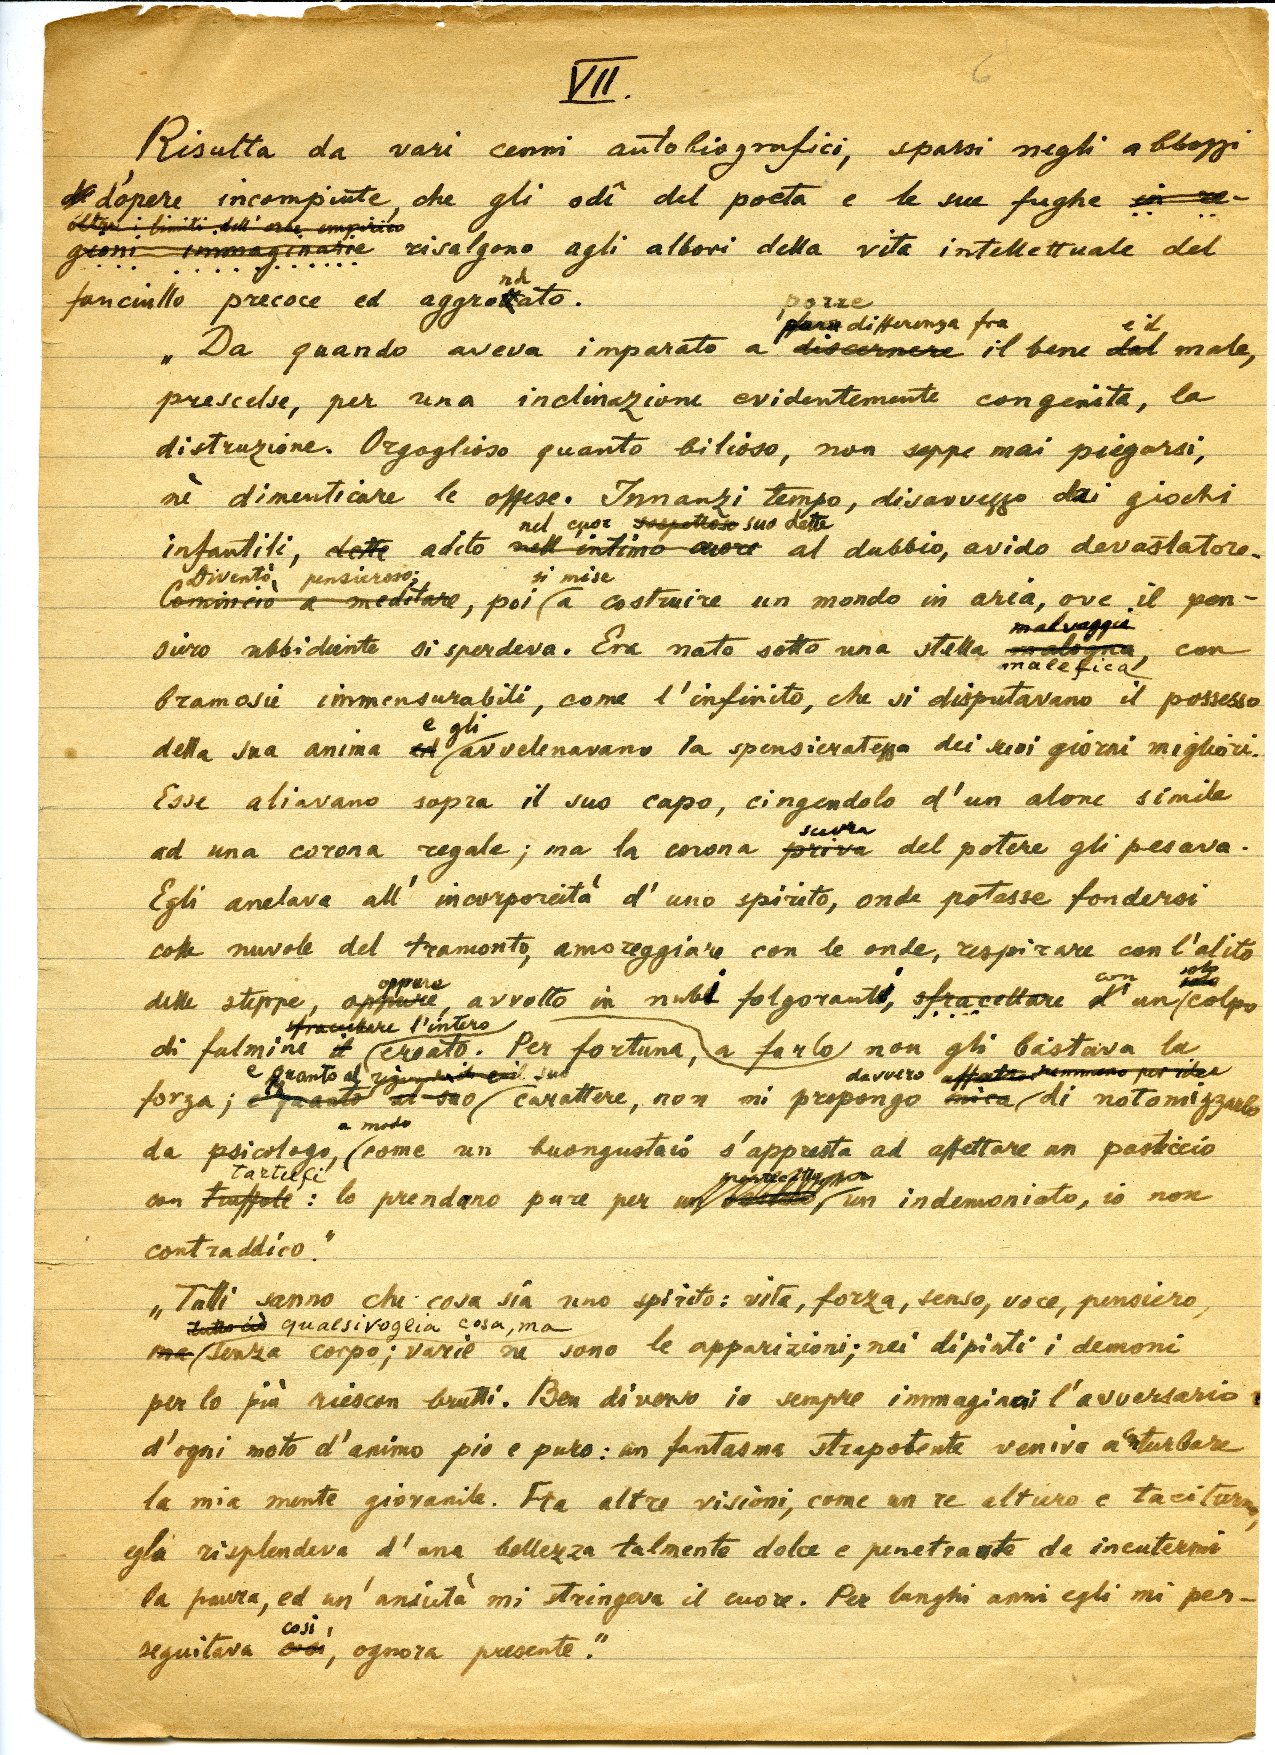 VII.
6
Risulta da vari cenni autobiografici, sparsi negli abbozzi
d'opere incompiute, che gli odî del poeta e le sue fughe in re-
oltre i limiti dell'orbe empirico
gioni immaginarie risalgono agli albori della vita intellettuale del
nd
fanciullo precoce ed aggrottato.
porre
differenza fra e il
„Da quando aveva imparato a discernere il bene dal male,
prescelse, per una inclinazione evidentemente congenita, la
distruzione. Orgoglioso quanto bilioso, non seppe mai piegarsi,
nè dimenticare le offese. Innanzi tempo, disavvezzo dai giochi
nel cuor sospettoso suo dette
infantili, dette adito nell'intimo cuore al dubbio, avido devastatore.
Diventò pensieroso; si mise
Cominciò a meditare, poi a costruire un mondo in aria, ove il pen-
malvaggia
siero ubbidiente si sperdeva. Era nato sotto una stella maligna, con
malefica
bramosie immensurabili, come l'infinito, che si disputavano il possesso
e gli
della sua anima ed avvelenavano la spensieratezza dei suoi giorni migliori.
Esse aliavano sopra il suo capo, cingendolo d'un alone simile
scevra
ad una corona regale; ma la corona priva del potere gli pesava.
Egli anelava all'incorporeità d'uno spirito, onde potesse fondersi
colle nuvole del tramonto, amoreggiare con le onde, respirare con l'alito
oppure con solo
delle steppe, oppure, avvolto in nubi folgoranti, sfracellare d'un colpo
sfracellare l'intero
di fulmine il creato. Per fortuna, a farlo non gli bastava la
e quanto al suo davvero
forza; e quanto al suo carattere, non mi propongo mica di notomizzarlo
a modo
da psicologo, come un buongustaio s'appresta ad affettare un pasticcio
tartufi
con truffole: lo prendano pure per un un indemoniato, io non
contraddico."
„Tutti sanno che cosa sia uno spirito: vita, forza, senso, voce, pensiero,
tutto ciò qualsivoglia cosa, ma
ma senza corpo; varie ne sono le apparizioni; nei dipinti i demoni
per lo più riescon brutti. Ben diverso io sempre immaginai l'avversario
d'ogni moto d'animo pio e puro: un fantasma strapotente veniva a conturbare
la mia mente giovanile. Fra altre visioni, come un re altero e taciturno,
egli risplendeva d'una bellezza talmente dolce e penetrante da incutermi
la paura, ed un'ansietà mi stringeva il cuore. Per lunghi anni egli mi per-
così
seguitava così, ognora presente."